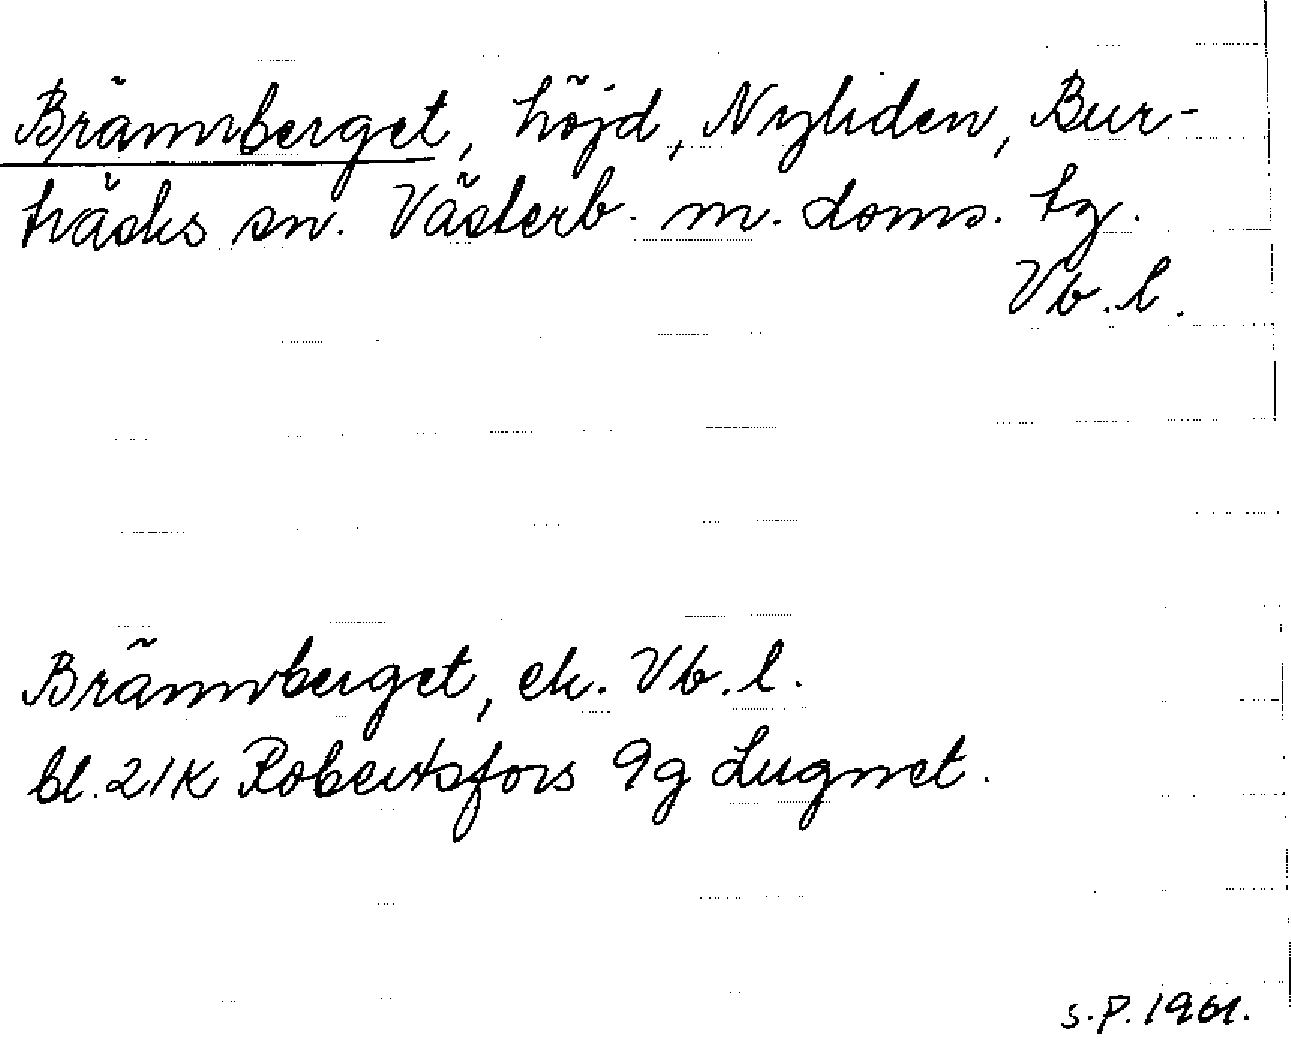 Brännberget, höjd, Nyliden, Bur-
träsks sn. Västerb. m. doms. tg.
Vb. l.
Brännberget, ek. Vb. l.
bl. 21K Robertsfors 9g Lugnet.
S.P. 1961.